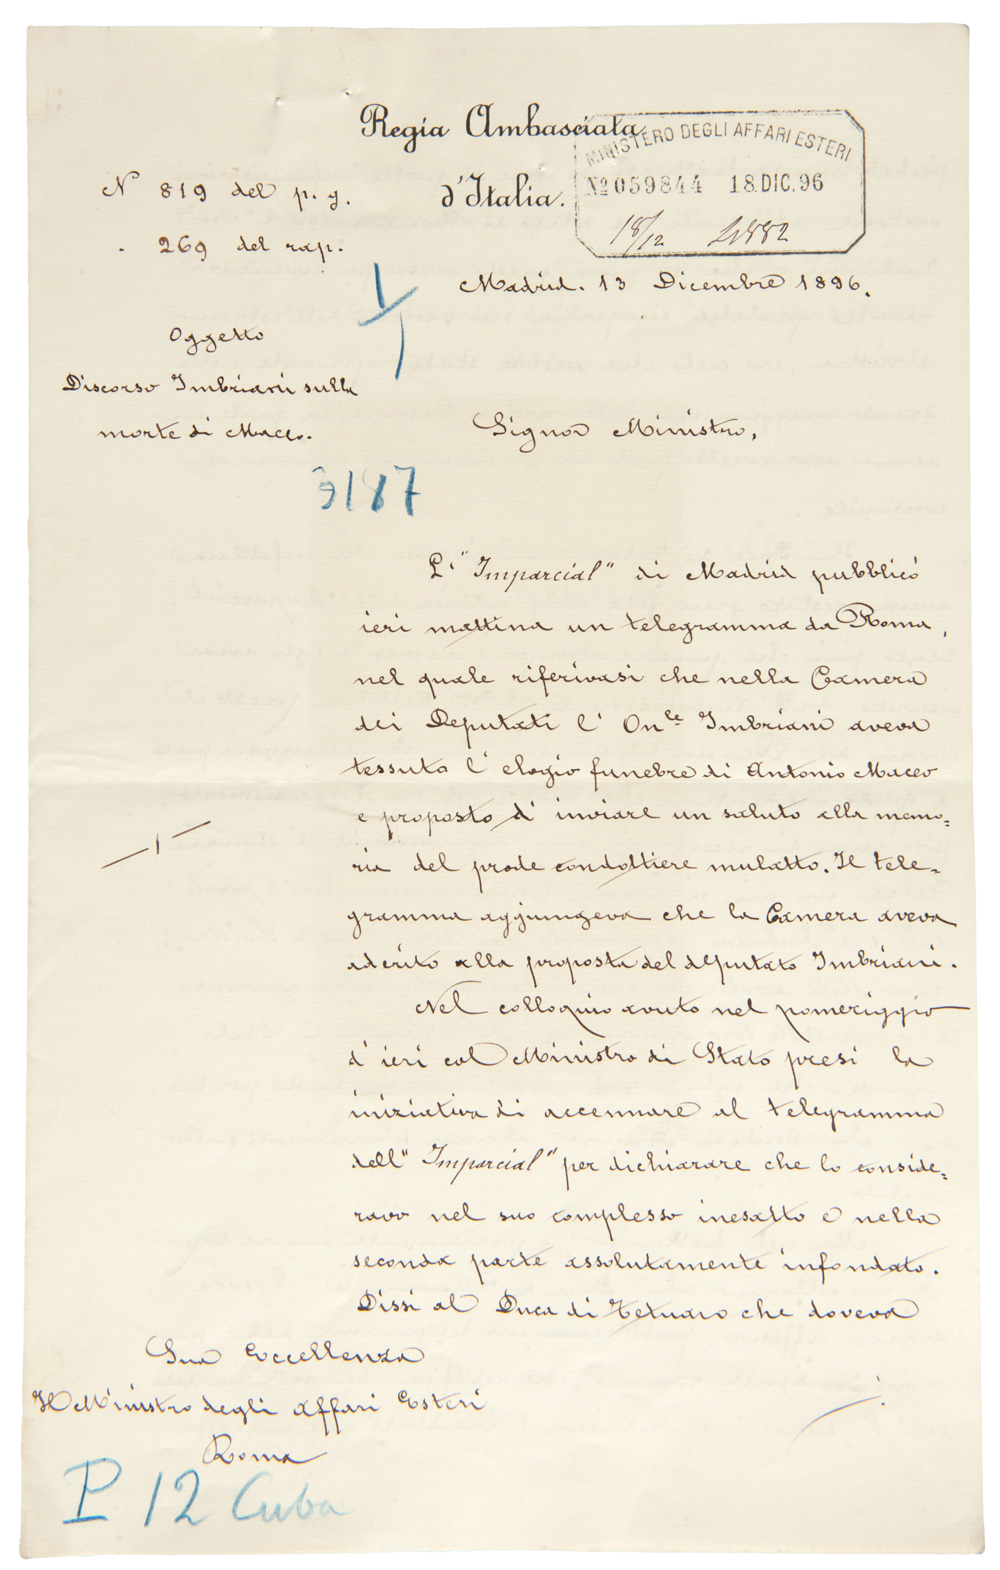 Regia Ambasciata
d'Italia.
MINISTERO DEGLI AFFARI ESTERI
No 059844 18.DIC.96
18/12
N 819 del p. g.
. 269 del rap.
Madrid. 13 Dicembre 1896.
Oggetto
Discorso Imbriani sulla
morte di Maceo.
Signor Ministro,
3187
L' "Imparcial" di Madrid pubblicó
ieri mattina un telegramma da Roma,
nel quale riferivasi che nella Camera
dei Deputati l' On.le Imbriani aveva
tessuto l' elogio funebre di Antonio Maceo
e proposto d' inviare un saluto alla memo=
ria del prode condottiere mulatto. Il tele=
gramma aggiungeva che la Camera aveva
aderito alla proposta del deputato Imbriani.
Nel colloquio avuto nel pomeriggio
d' ieri col Ministro di Stato presi la
iniziativa di accennare al telegramma
dell' "Imparcial" per dichiarare che lo conside=
ravo nel suo complesso inesatto e nella
seconda parte assolutamente infondato.
Dissi al Duca di Tetuano che doveva
Sua Eccellenza
Il Ministro degli Affari Esteri
Roma
P 12 Cuba